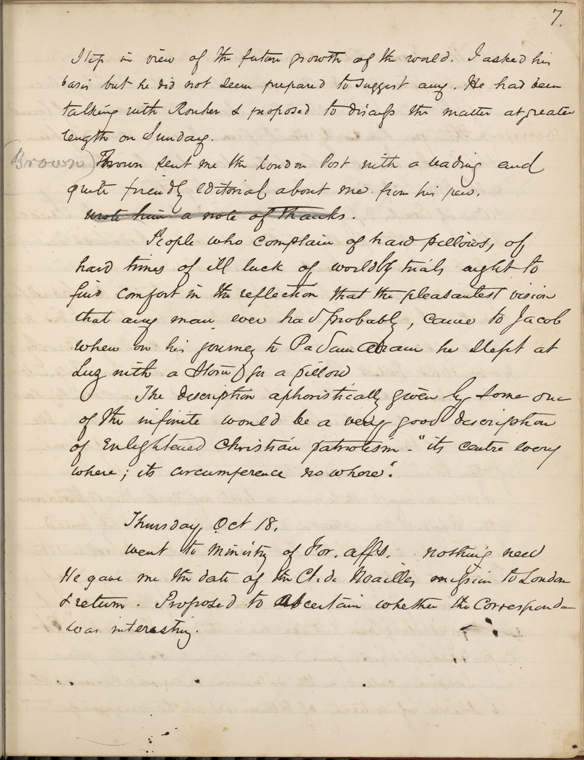 7.
Step in view of the future growth of the world. I asked his
basis but he did not seem prepared to suggest any. He had been
talking with Rouher & proposed to discuss the matter at greater
length on Sunday.
(Brown) Brown sent me the London Post with a leading and
quite friendly editorial about me from his pen.
wrote him a note of thanks.
People who complain of hard pillows, of
hard times of ill luck of worldly trials ought to
find comfort in the reflection that the pleasantest vision
that any man ever had probably, came to Jacob
when on his journey to Padanaram he slept at
Luz with a stone for a pillow
The description aphoristically given by some one
of the infinite would be a very good description
of Enlightened Christian patriotism. "its centre every
where; its circumference no where".
Thursday, Oct 18.
went to Ministry of For. affs. nothing new
He gave me the date of the Ct. de Noailles mission to London
& return. Proposed to ascertain whether the Corresponde
was interesting.